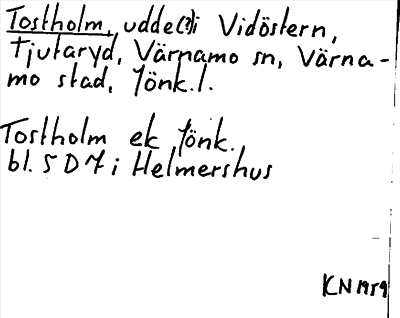 Tostholm, udde(?) i Vidöstern,
Tjutaryd, Värnamo sn, Värna-
mo stad, Jönk. l.
Tostholm ek Jönk.
bl. 5 D 7 i Helmershus
KN 1959